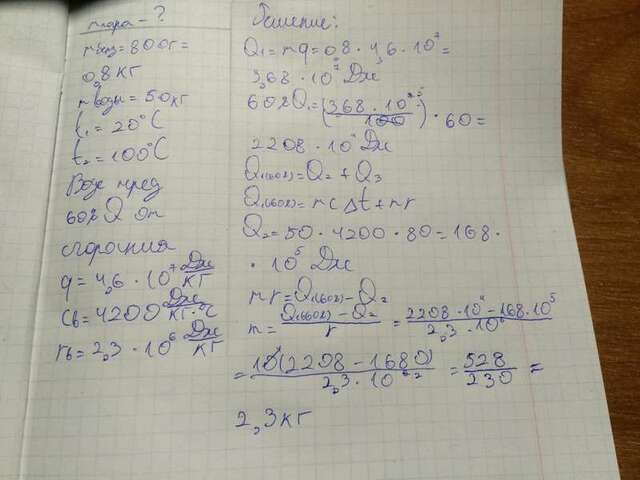 mпара - ?
mбенз = 800г =
0,8 кг
mводы = 50 кг
t₁ = 20°C
t₂ = 100°C
Воде перед
60% Q от
сгорания
q = 4,6 · 10⁷ Дж/кг
cв = 4200 Дж/кг·°C
rв = 2,3 · 10⁶ Дж/кг
Решение:
Q₁ = mq = 0,8 · 4,6 · 10⁷ =
3,68 · 10⁷ Дж
60%Q₁ = (368 · 10⁵ / 100) · 60 =
2208 · 10⁴ Дж
Q₁(60%) = Q₂ + Q₃
Q₁(60%) = mcΔt + mr
Q₂ = 50 · 4200 · 80 = 168 ·
· 10⁵ Дж
mr = Q₁(60%) - Q₂
m = Q₁(60%) - Q₂ / r = 2208 · 10⁴ - 168 · 10⁵ / 2,3 · 10⁶
= 10⁴(2208 - 1680) / 2,3 · 10⁶ ² = 528 / 230 =
2,3 кг